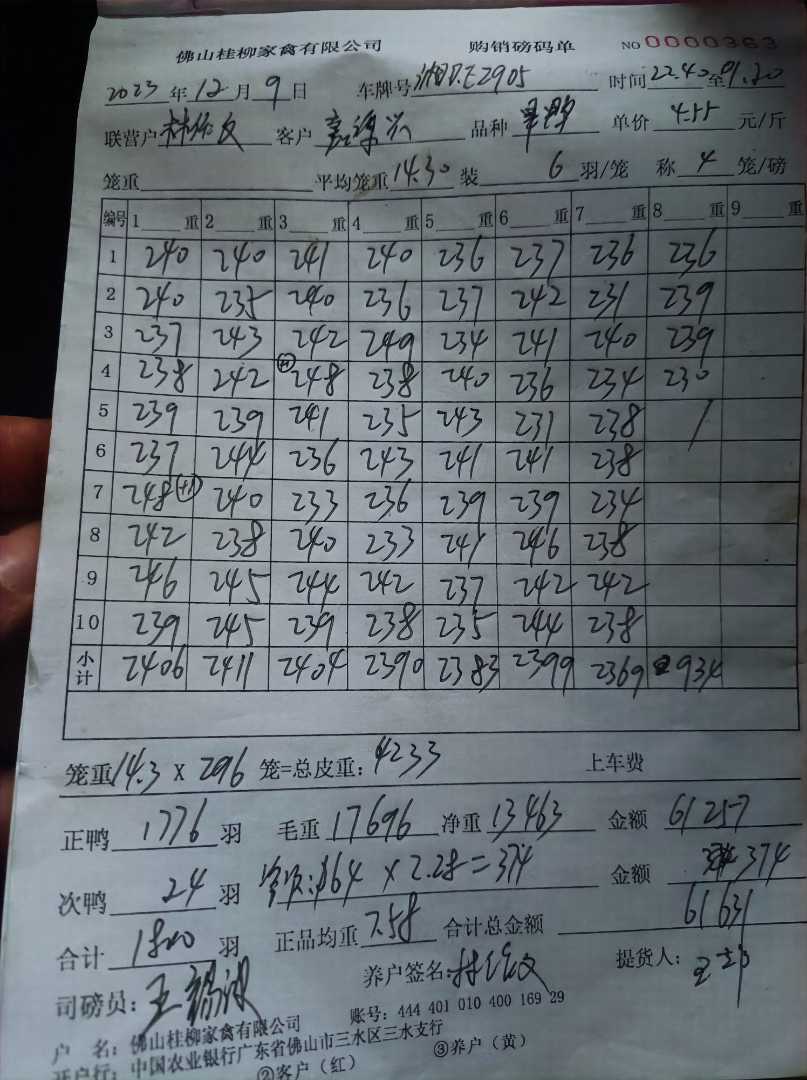 佛山桂柳家禽有限公司 购销磅码单 NO 0000363
2023 年 12 月 9 日 车牌号 湘D.E2905 时间 22.40 至 01.20
联营户 客户 品种 单价 4.55 元/斤
笼重 平均笼重 14.30 装 6 羽/笼 称 4 笼/磅
编号 1 重 2 重 3 重 4 重 5 重 6 重 7 重 8 重 9 重
1 240 240 241 240 236 237 236 236
2 240 235 240 236 237 242 231 239
3 237 243 242 249 234 241 240 239
4 238 242 248 238 240 236 234 230
5 239 239 241 235 243 231 238 /
6 237 244 236 243 241 241 238
7 248 (+1) 240 233 236 239 239 234
8 242 238 240 233 241 246 238
9 246 245 244 242 237 242 242
10 239 245 239 238 235 244 238
小计 2406 2411 2404 2390 2383 2399 2369 934
笼重 14.3 X 296 笼=总皮重: 4233 上车费
正鸭 1776 羽 毛重 17696 净重 13463 金额 61257
次鸭 24 羽 164 X 2.28 = 374 金额 374
合计 1800 羽 正品均重 7.58 合计总金额 61631
司磅员: 养户签名: 提货人:
户 名: 佛山桂柳家禽有限公司 账号: 444 401 010 400 169 29
开户行: 中国农业银行广东省佛山市三水区三水支行
②客户（红） ③养户（黄）